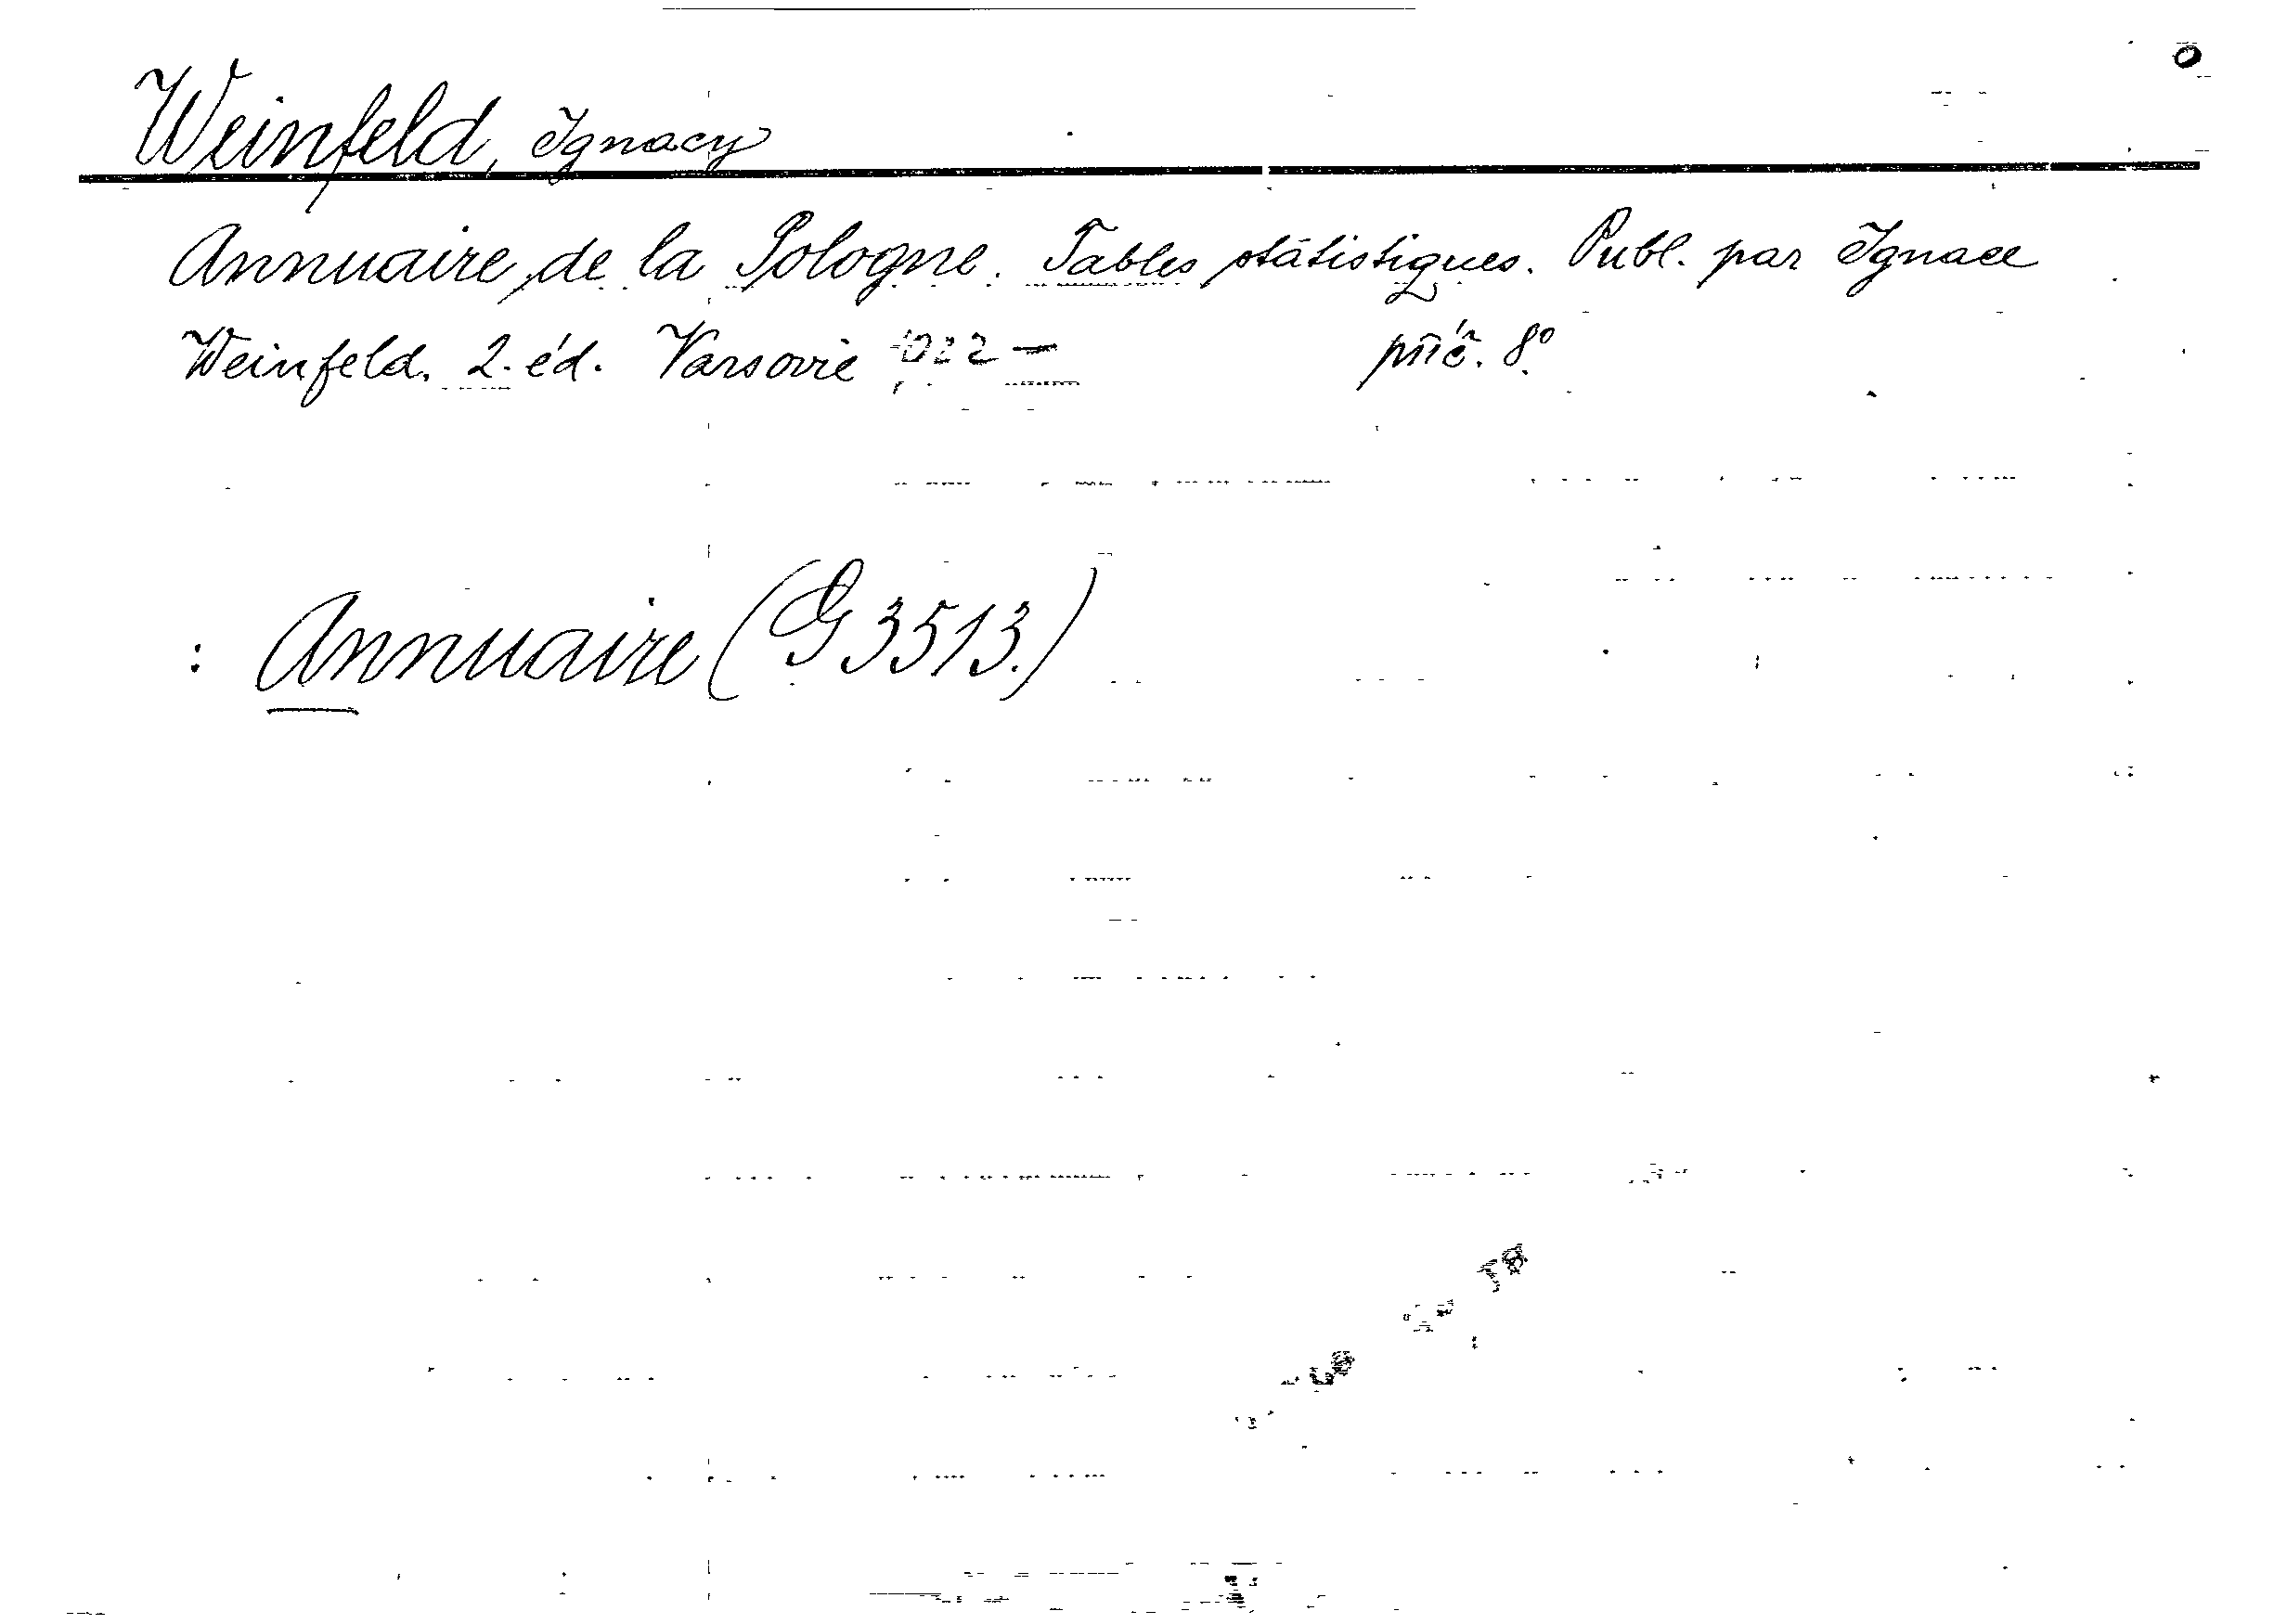 Weinfeld, Ignacy
Annuaire de la Pologne. Tables statistiques. Publ. par Ignace
Weinfeld. 2. éd. Varsovie 1922 — příč. 8°.
: Annuaire (G 3513.)